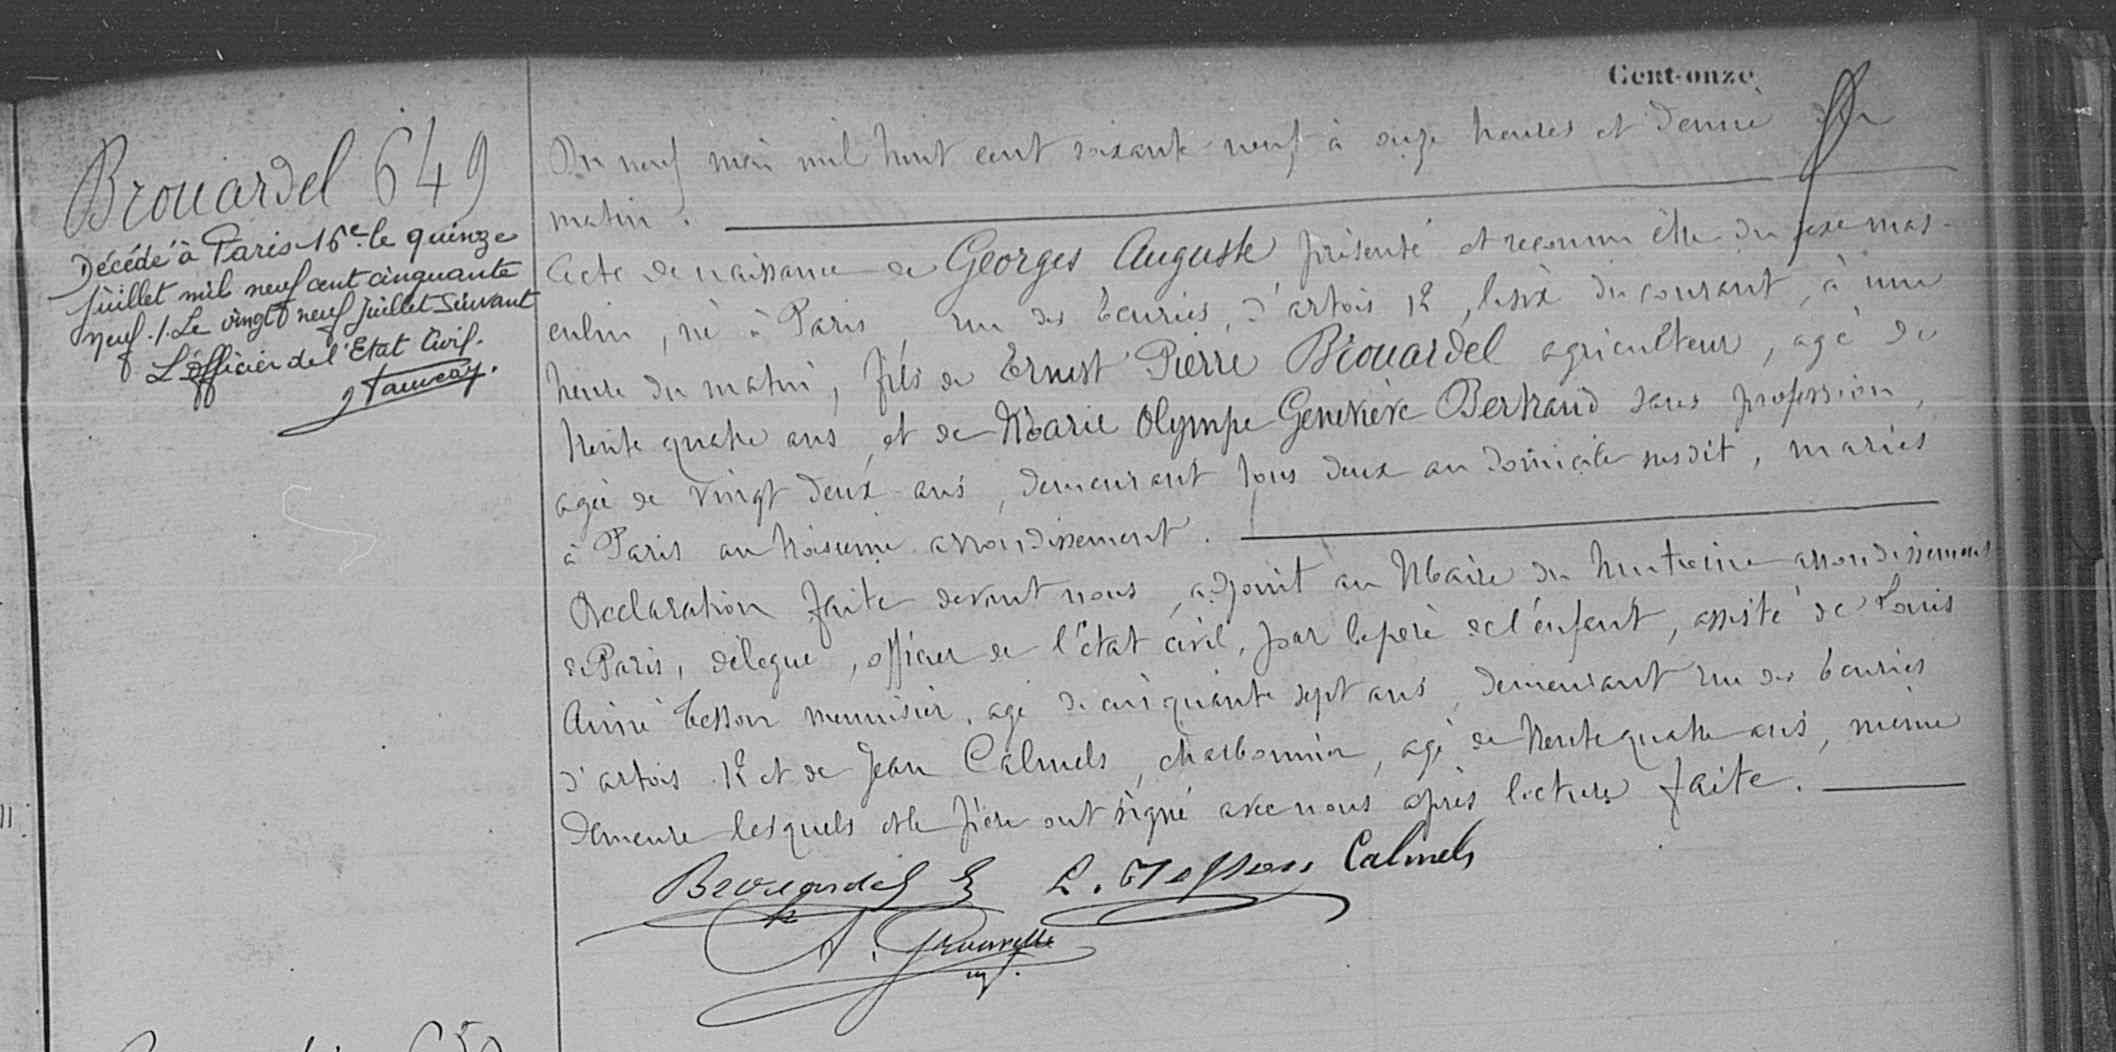 Cent-onze
Brouardel 649
Décédé à Paris 16e le quinze
juillet mil neuf cent cinquante
neuf ./. Le vingt neuf juillet suivant
L'officier de l'Etat Civil.
Du neuf mai mil huit cent soixante neuf à onze heures et demie du
matin.
Acte de naissance de Georges Auguste présenté et reconnu être du sexe mas-
culin, né à Paris, rue des Ecuries, d'artois 12, le six du courant, à une
heure du matin, fils de Ernest Pierre Brouardel agriculteur, agé de
trente quatre ans, et de Marie Olympe Geneviève Bertrand sans profession,
agée de vingt deux ans, demeurant tous deux au domicile susdit, mariés
à Paris au troisième arrondissement.
Déclaration faite devant nous, adjoint au Maire du huitième arrondissement
de Paris, délégué, officier de l'état civil, par le père de l'enfant, assisté de Louis
Aimé Tesson menuisier, agé de cinquante sept ans, demeurant rue des Ecuries
d'artois 12 et de Jean Calmels, charbonnier, agé de trente quatre ans, même
demeure lesquels et le père ont signé avec nous après lecture faite.
Brouardel E L. Tesson Calmels
A. Grouvelle
11.
650